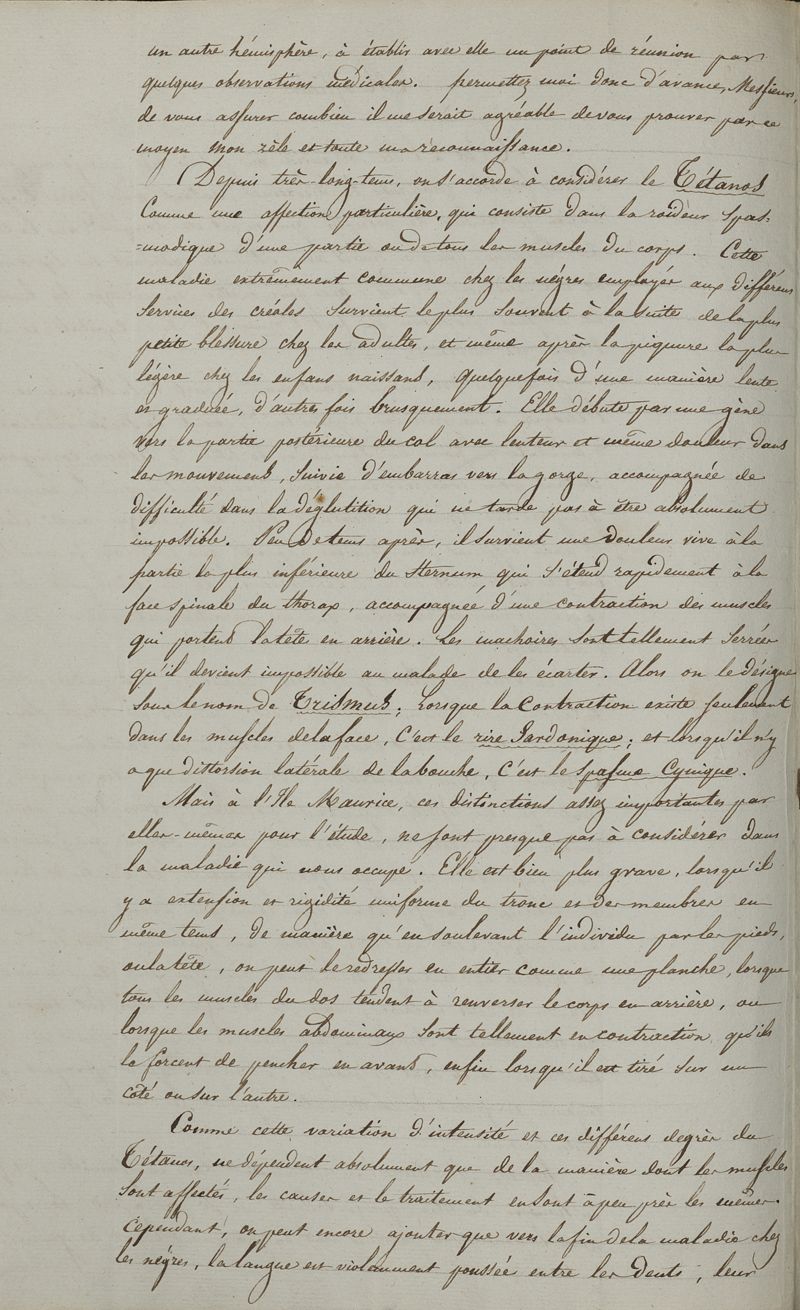 un autre hémisphère, à établir avec elle un point de réunion par
quelques observations médicales. permettez moi donc d'avance, Messieurs,
de vous assurer combien il me serait agréable de vous prouver par ce
moyen mon zèle et toute ma reconnaissance.
Depuis très-long-tems, on s'accorde à considérer le Tétanos
Comme une affection particulière, qui consiste dans la roideur spas-
=modique d'une partie ou de tous les muscles du corps. Cette
maladie extrêmement commune chez les nègres employés aux différens
Services des créoles survient le plus souvent à la suite de la plus
petite blessure chez les adultes, et même après la piquure la plus
légère chez les enfans naissans, quelquefois d'une manière lente
et graduée, d'autres fois brusquement. Elle débute par une gène
vers la partie postérieure du col avec lenteur et même douleur dans
les mouvemens, suivie d'embarras vers la gorge, accompagnée de
difficulté dans la déglutition qui ne tarde pas à être absolument
impossible. Peu de tems après, il survient une douleur vive à la
partie la plus inférieure du sternum qui s'étend rapidement à la
face spinale du thorax, accompagnée d'une contraction des muscles
qui portent la tête en arrière. Les machoires sont tellement serrées
qu'il devient impossible au malade de les écarter. Alors on le désigne
sous le nom de Trismus; Lorsque la contraction existe seulement
dans les muscles de la face, C'est le rire Sardonique; et lorsqu'il n'y
a que distorsion latérale de la bouche, C'est le spasme Cynique.
Mais à l'Ile Maurice, ces distinctions assez importantes par
elles-mêmes pour l'étude, ne sont presque pas à considérer dans
la maladie qui nous occupe. Elle est bien plus grave, lorsqu'il
y a extension et rigidité uniforme du tronc et des membres en
même tems, de manière qu'en soulevant l'individu par les pieds,
ou la tête, on peut le redresser en entier comme une planche, lorsque
tous les muscles du dos tendent à renverser le corps en arrière, ou
lorsque les muscles abdominaux sont tellement en contraction qu'ils
le forcent de pencher en avant, enfin lorsqu'il est tiré sur un
coté ou sur l'autre.
Comme cette variation d'intensité et ces différens degrès du
Tétanos, ne dépendent absolument que de la manière dont les muscles
sont affectés, les causes et le traitement en sont à peu près les mêmes.
Cependant, on peut encore ajouter que vers la fin de la maladie chez
les nègres, la langue est violamment poussée entre les dents, leur